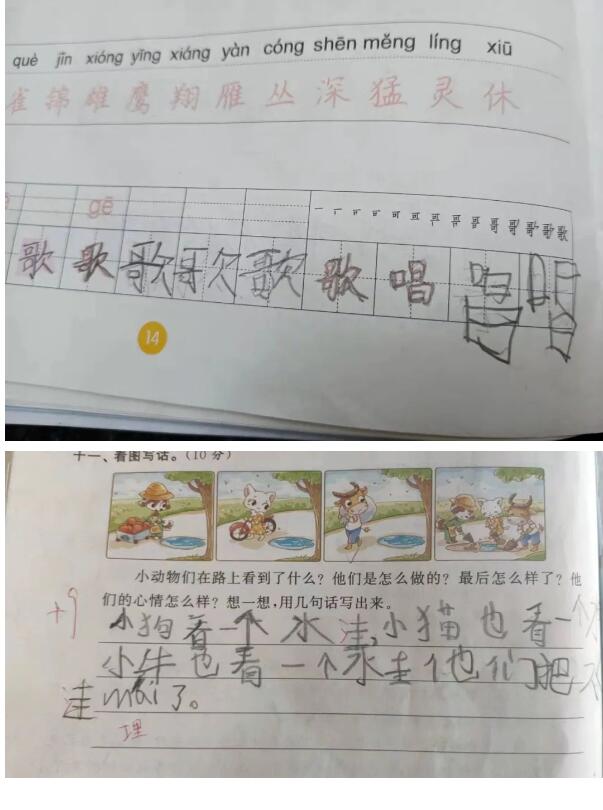 què jǐn xióng yīng xiáng yàn cóng shēn měng líng xiū
雀 锦 雄 鹰 翔 雁 丛 深 猛 灵 休
gē
歌 歌 歌 歌 歌 歌 唱 唱 唱
14
十一、看图写话。(10分)
小动物们在路上看到了什么?他们是怎么做的?最后怎么样了?他
们的心情怎么样?想一想,用几句话写出来。
+9
小狗看一个水洼,小猫也看一个水
小牛也看一个水圭他们把水
洼mái了。
埋